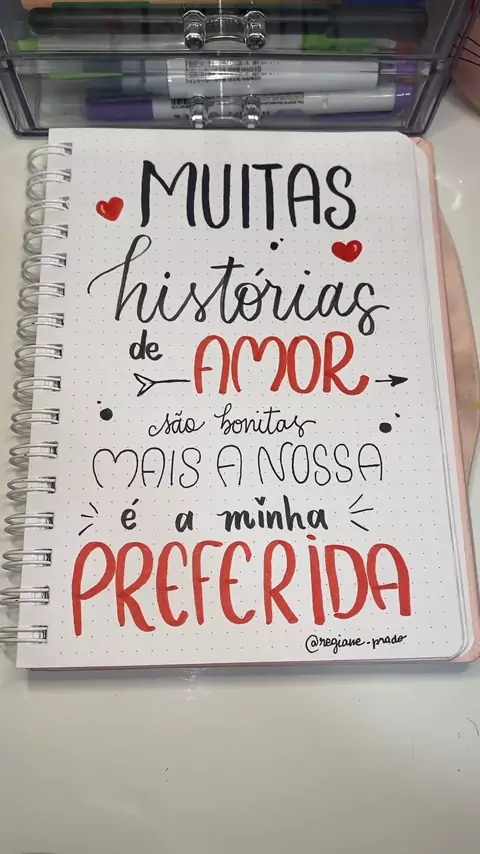 MUITAS
histórias
de AMOR
são bonitas
MAIS A NOSSA
é a minha
PREFERIDA
@regiane_prado